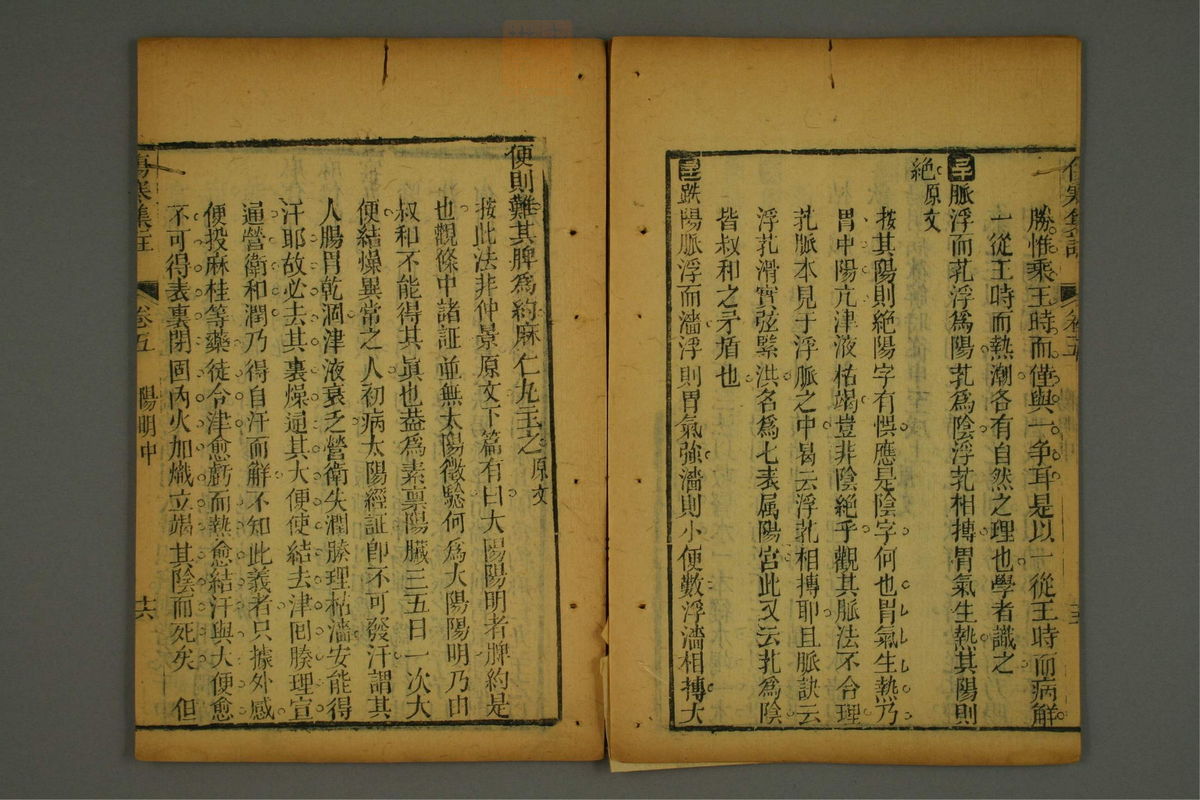 傷寒集註
卷五
勝惟乘王時而僅與一爭耳是以一從王時而病解
一從王時而熱潮各有自然之理也學者識之
脈浮而芤浮爲陽芤爲陰浮芤相搏胃氣生熱其陽則
絶原文
按其陽則絶陽字有悞應是陰字何也胃氣生熱乃
胃中陽亢津液枯竭豈非陰絶乎觀其脈法不合理
芤脈本見于浮脈之中曷云浮芤相搏耶且脈訣云
浮芤滑實弦緊洪名爲七表属陽宫此又云芤爲陰
皆叔和之矛盾也
趺陽脈浮而濇浮則胃氣強濇則小便數浮濇相摶大
便則難其脾爲約麻仁丸主之原文
按此法非仲景原文下篇有曰太陽陽明者脾約是
也觀條中諸証並無太陽徵騐何爲太陽陽明乃由
叔和不能得其眞也葢爲素禀陽臟三五日一次大
便結燥異常之人初病太陽經証卽不可發汗謂其
人腸胃乾涸津液衰乏營衛失潤腠理枯濇安能得
汗耶故必去其裏燥通其大便使結去津囘腠理宣
通營衛和潤乃得自汗而解不知此義者只據外感
便投麻桂等藥徒令津愈虧而熱愈結汗與大便愈
不可得表裏閉固內火加熾立竭其陰而死矣 但
傷寒集註
卷五
陽明中